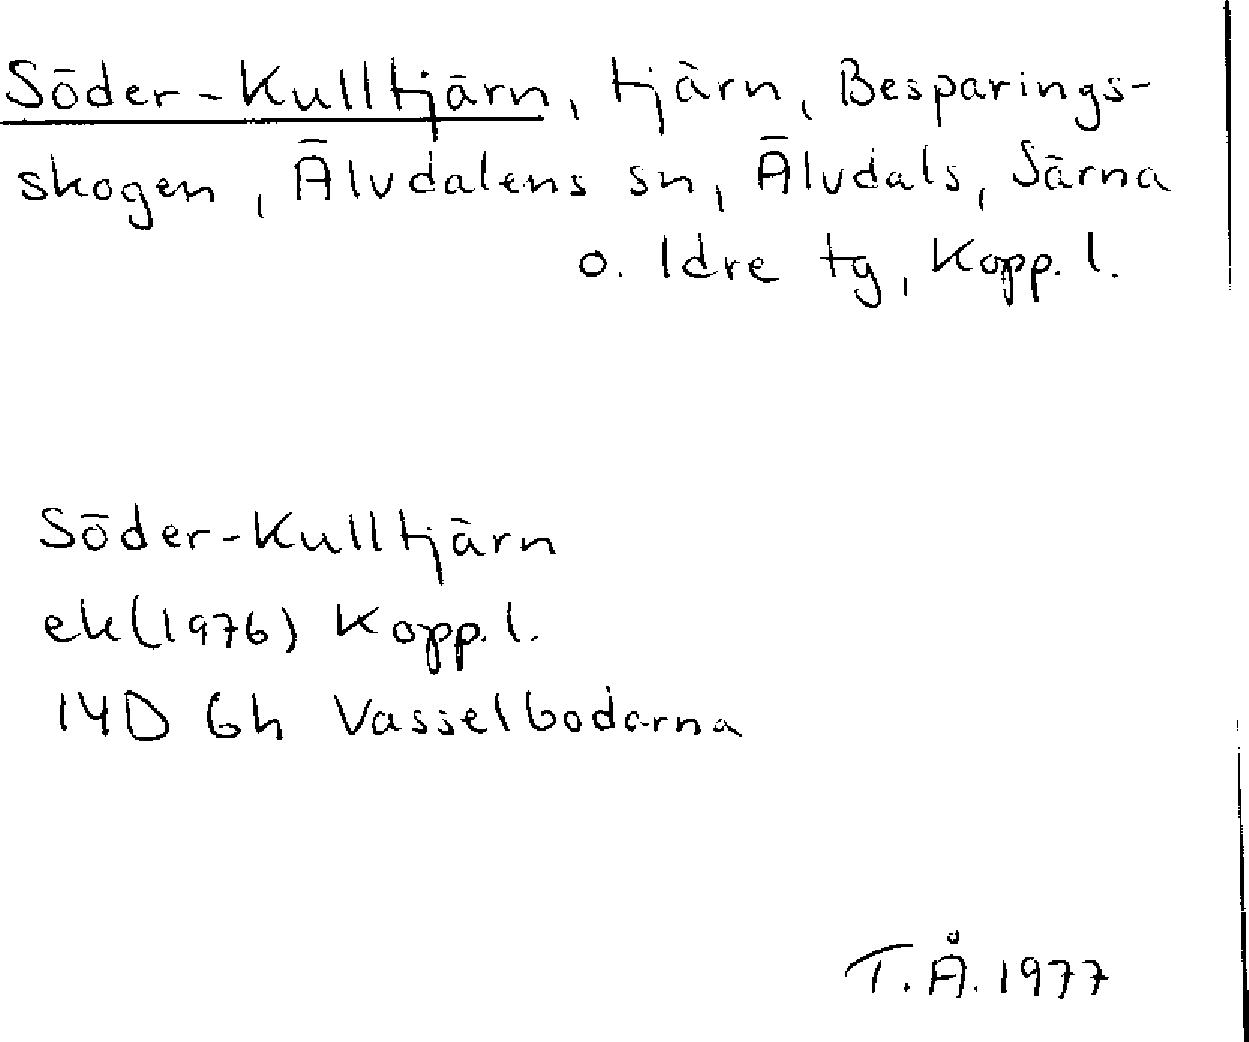 Söder-Kulltjärn, tjärn, Besparings-
skogen, Älvdalens sn, Älvdals, Särna
o. Idre tg, Kopp. l.
Söder-Kulltjärn
ek(1976) Kopp. l.
14D 6h Vasselbodarna
T. Å. 1977